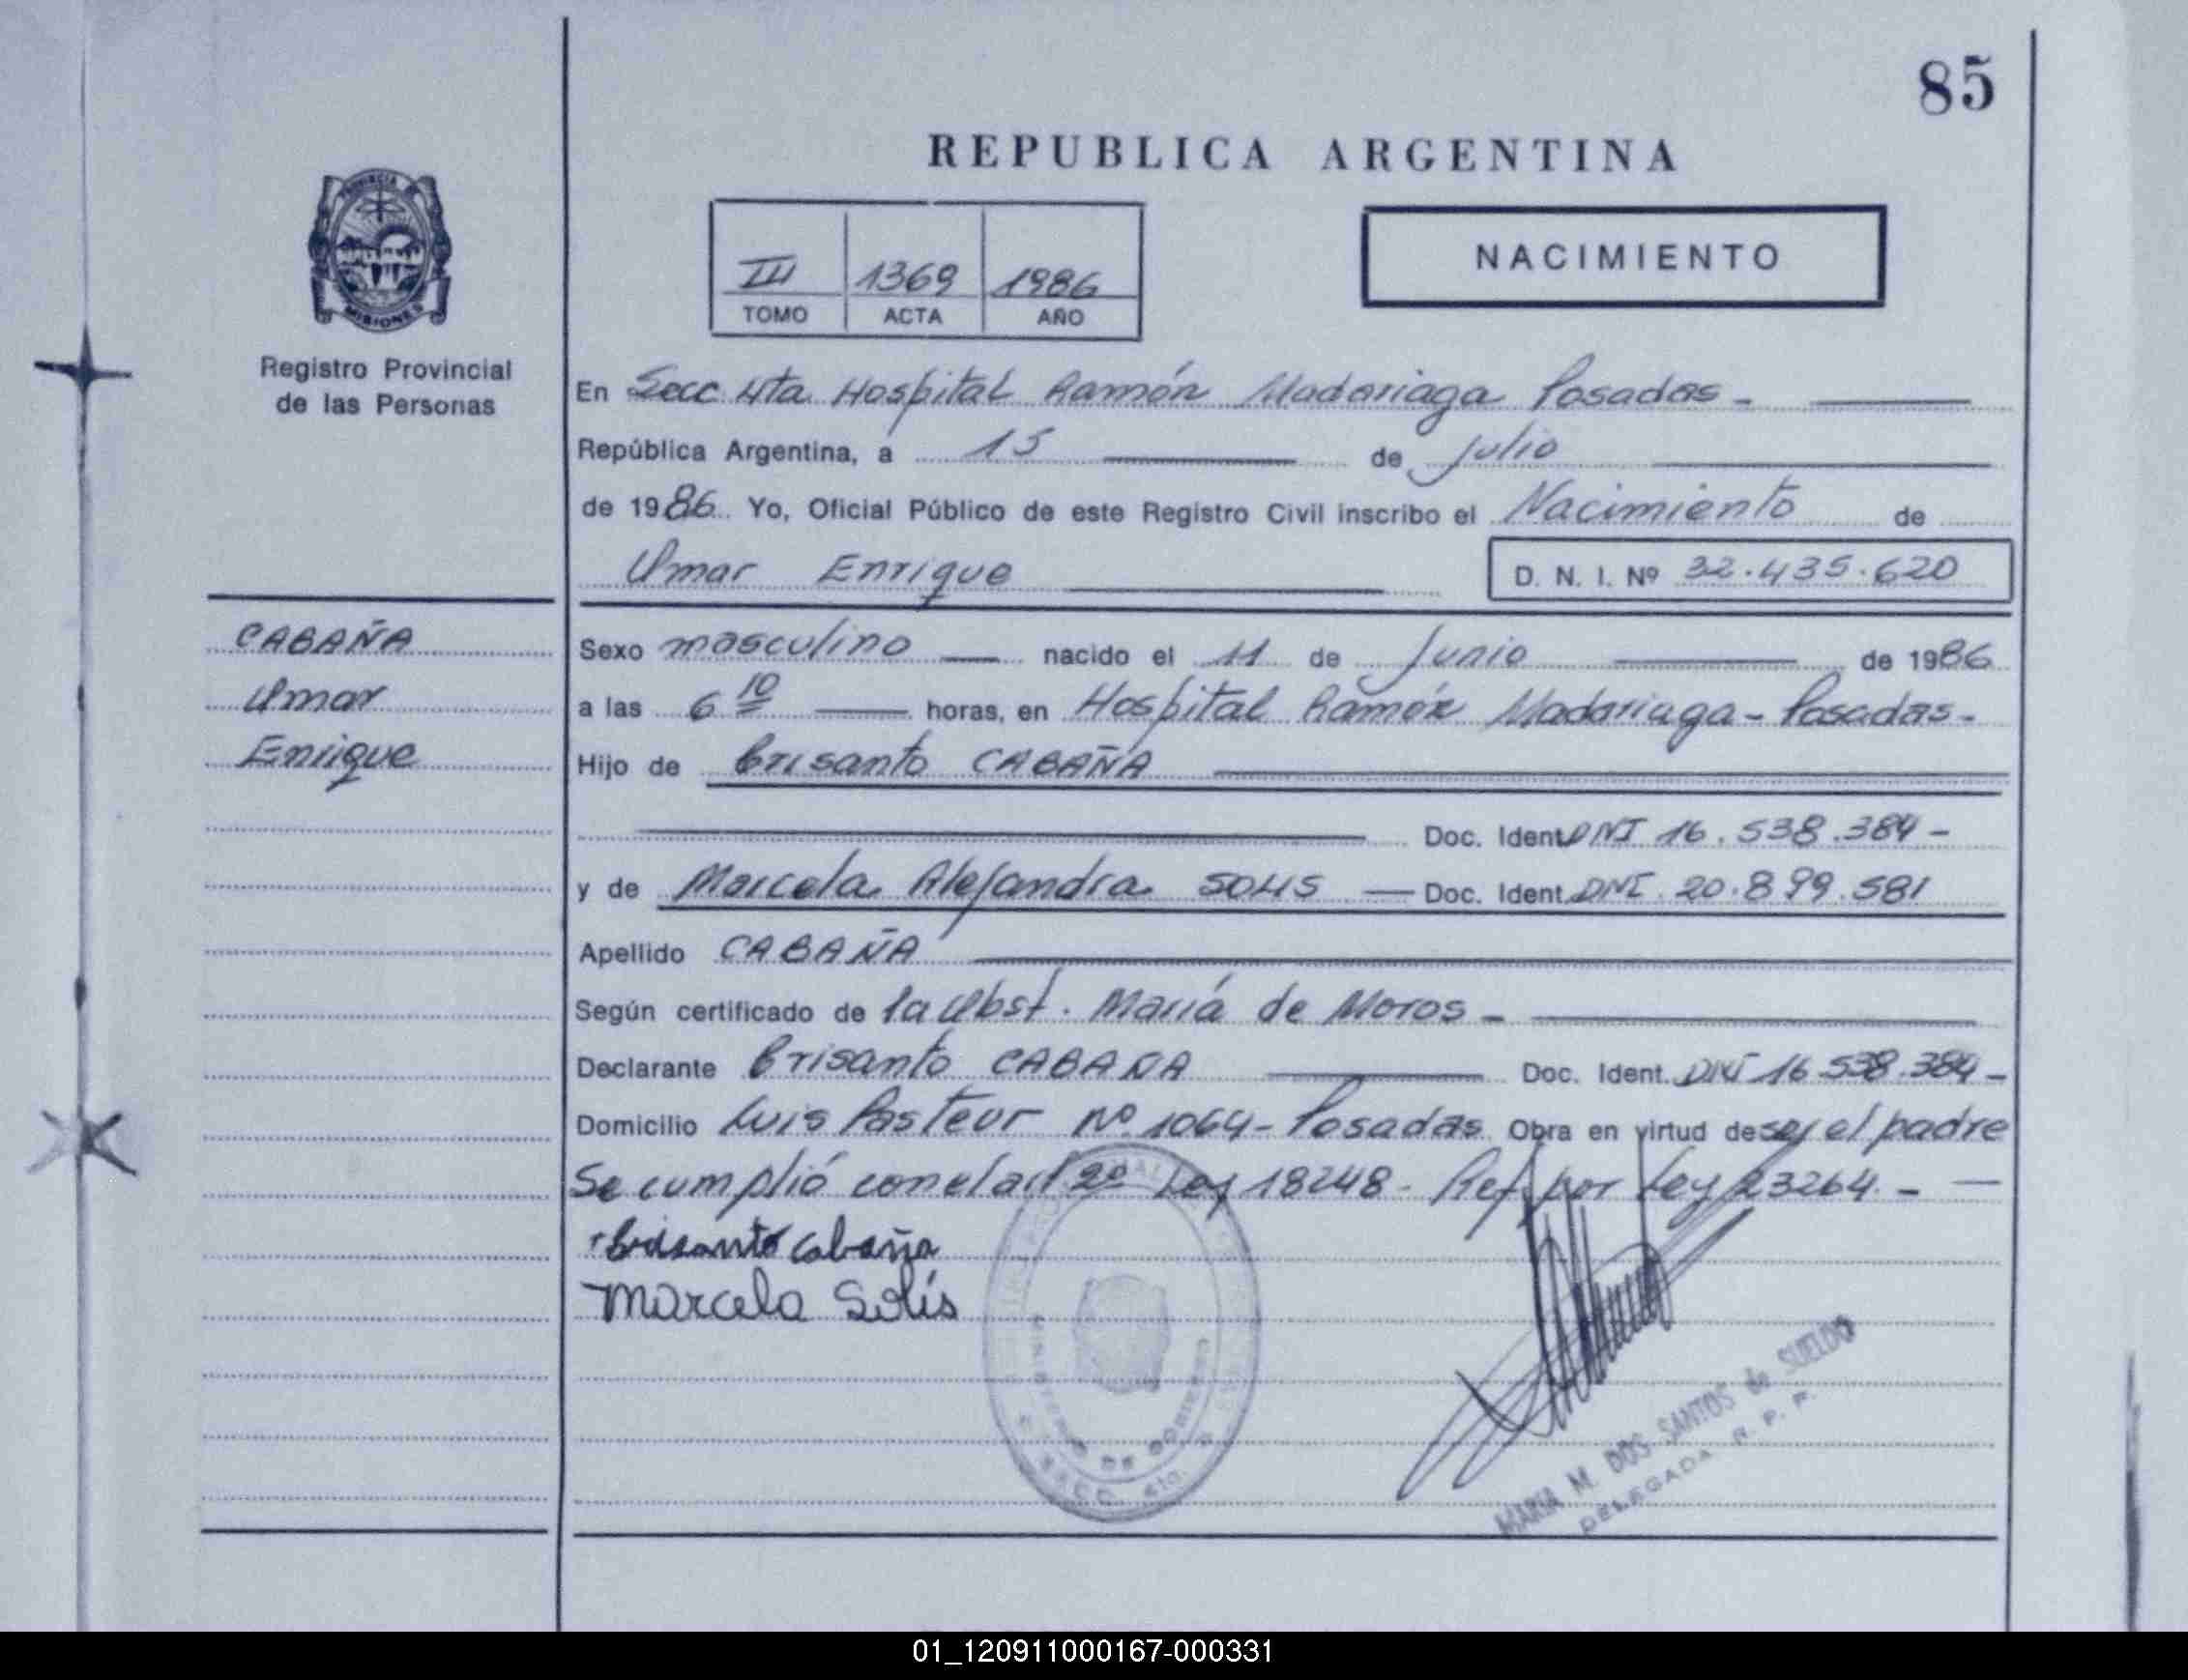 85
REPUBLICA ARGENTINA
PROVINCIA DE
MISIONES
Registro Provincial
de las Personas
III 1369 1986
TOMO ACTA AÑO
NACIMIENTO
En Secc. 4ta Hospital Ramón Madariaga Posadas -
República Argentina, a 15 de Julio
de 1986. Yo, Oficial Público de este Registro Civil inscribo el Nacimiento de
Omar Enrique D. N. I. Nº 32.435.620
CABAÑA
Omar
Enrique
Sexo masculino nacido el 11 de Junio de 1986
a las 6 10 horas, en Hospital Ramón Madariaga - Posadas -
Hijo de Crisanto CABAÑA
Doc. Ident. DNI 16.538.384 -
y de Marcela Alejandra SOLIS Doc. Ident. DNI. 20.899.581
Apellido CABAÑA
Según certificado de la Obst. María de Moros -
Declarante Crisanto CABAÑA Doc. Ident. DNI 16.538.384 -
Domicilio Luis Pasteur Nº 1064 - Posadas Obra en virtud de ser el padre
Se cumplió con el art 2º Ley 18248 - Ref. por Ley 23264 . -
Crisanto Cabaña
Marcela Solís
MINISTERIO DE GOBIERNO
SECC. 4ta.
MARIA M. DOS SANTOS de SUELDO
DELEGADA R. P. P.
01_120911000167-000331